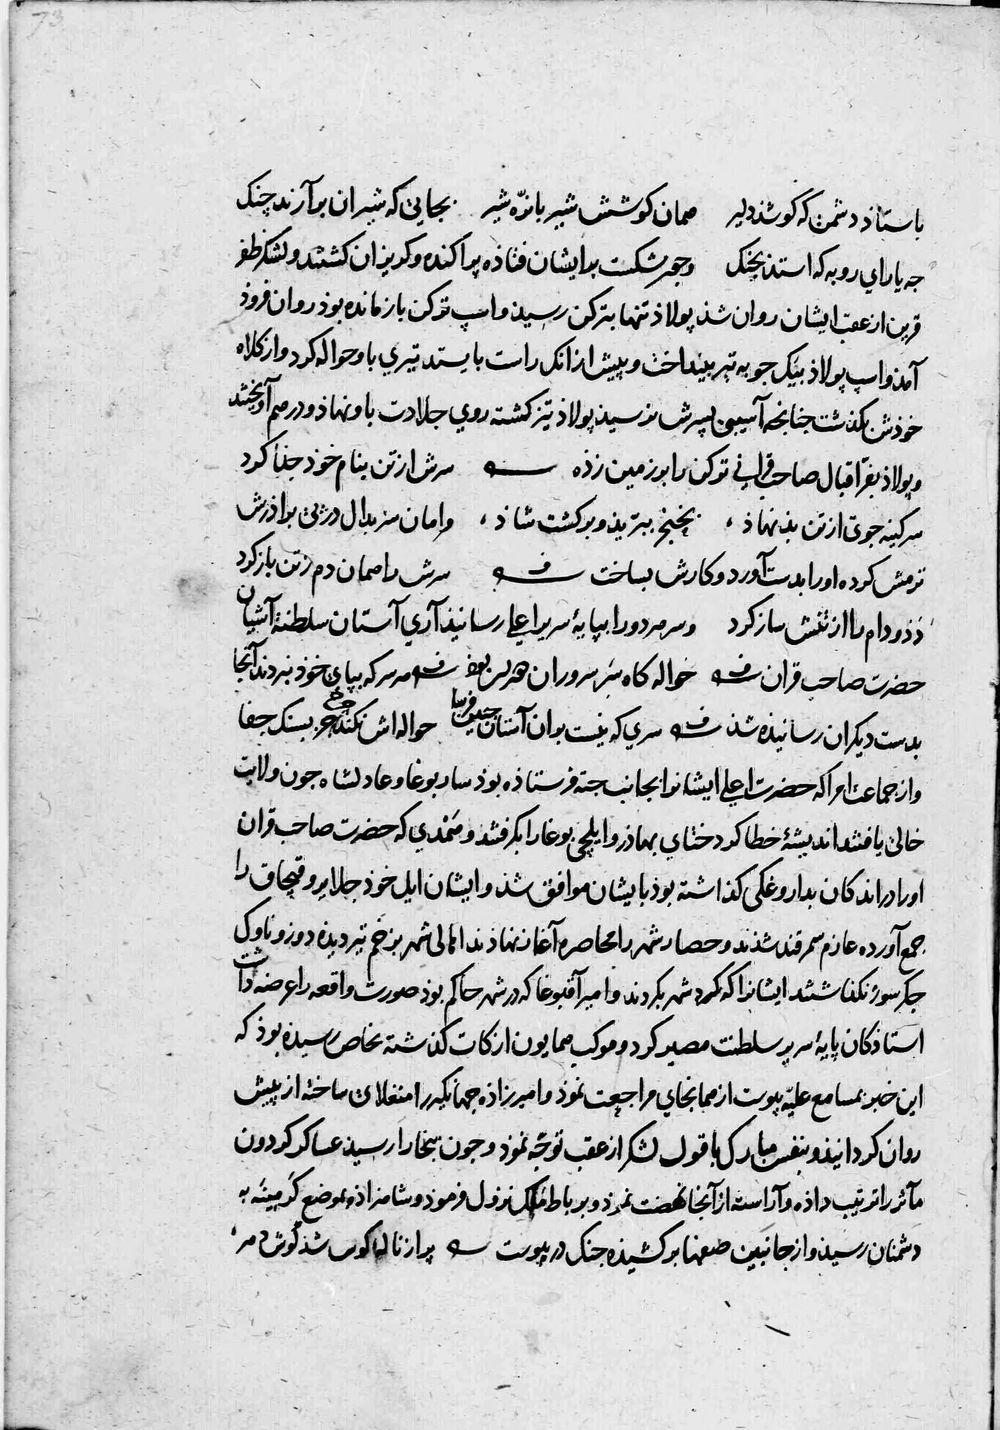 73
باستاذ دشمن که کوشذ دلیر همان کوشش شیر با نرّه شیر بجایی که شیران برآرند چنک
جه یارای روبه که استذ بجنک وجون شکست برایشان فتاذه پراکنده وکریزان کشتند ولشکر ظفر
قرین از عقب ایشان روان شذ پولاذ تنها بترکن رسیذ واسب ترکن باز مانده بوذ روان فروذ
آمذ واسپ پولاذ بیک جوبه تیر بینداخت وپیش از انک راست بایستد تیری باو حواله کرد واز کلاه
خوذش بکذشت جنانجه آسیبی بسرش نرسیذ پولاذ تیز کشته روی جلادت باو نهاذ ودرهم آویختند
وپولاذ بفرّ اقبال صاحب قرانی ترکن را بر زمین زذه سرش از تن بنام خوذ جذا کرد
سر کینه جوی از تن بذ نهاذ بخنجر ببریذ وبرکشت شاذ وامان سربدال در پی برادرش
ترمش کرده اورا بدست آورد وکارش بساخت سرش را همان دم ز تن باز کرد
دذ ودام را از تنش ساز کرد وسر هر دو را بپایهٔ سریر اعلی رسانیذ آری آستان سلطنة آشیان
حضرت صاحب قران حواله کاه سر سروران هر سر که بپای خوذ نبردند آنجا
بدست دیکران رسانیذه شذ سری که نیست بران آستان جبین فرسا حواله اش نکند جرخ جز بسنک جفا
واز جماعت امرا که حضرت اعلی ایشانرا بجانب جته فرستاذه بوذ ساربوغا وعادلشاه جون ولایت
خالی یافتند اندیشهٔ خطا کرد ختای بهاذر وایلچی بوغارا بکرفتند و همدی که حضرت صاحب قران
اورا در اندکان بداروغکی کذاشته بوذ با یشان موافق شذ وایشان ایل خوذ جلایر وقبچاق را
جمع آورده عازم سمرقند شذند وحصار شهر را محاصره آغاز نهاذند اهالی شهر بزخم تیر دیذه دوز وناوک
جکر سوز نکذاشتند ایشانرا که کرد شهر بکردند وامیر آقبوغا که در شهر حاکم بوذ صورت واقعه را عرضه داشت
استاذکان پایهٔ سریر سلطنت مصیر کرد وموکب همایون از کات کذشته بخاص رسیذه بوذ که
این خبر بمسامع علیّه پیوست از همانجای مراجعت نموذ وامیرزاذه جهانکیر را منغلای ساخته از پیش
روان کردانیذ وبنفس مبارک با قول لشکر از عقب توجّه نموذ وجون ببخارا رسیذ عساکر کردون
مآثر را ترتیب داذه وآراسته از آنجا نهضت نموذ وبر باط ملک نزول فرموذ وشاهزاذه بموضع کرمینه به
دشمنان رسیذ واز جانبین صفها برکشیذه جنک در پیوست پر از نالهٔ کوس شذ کوش مهر